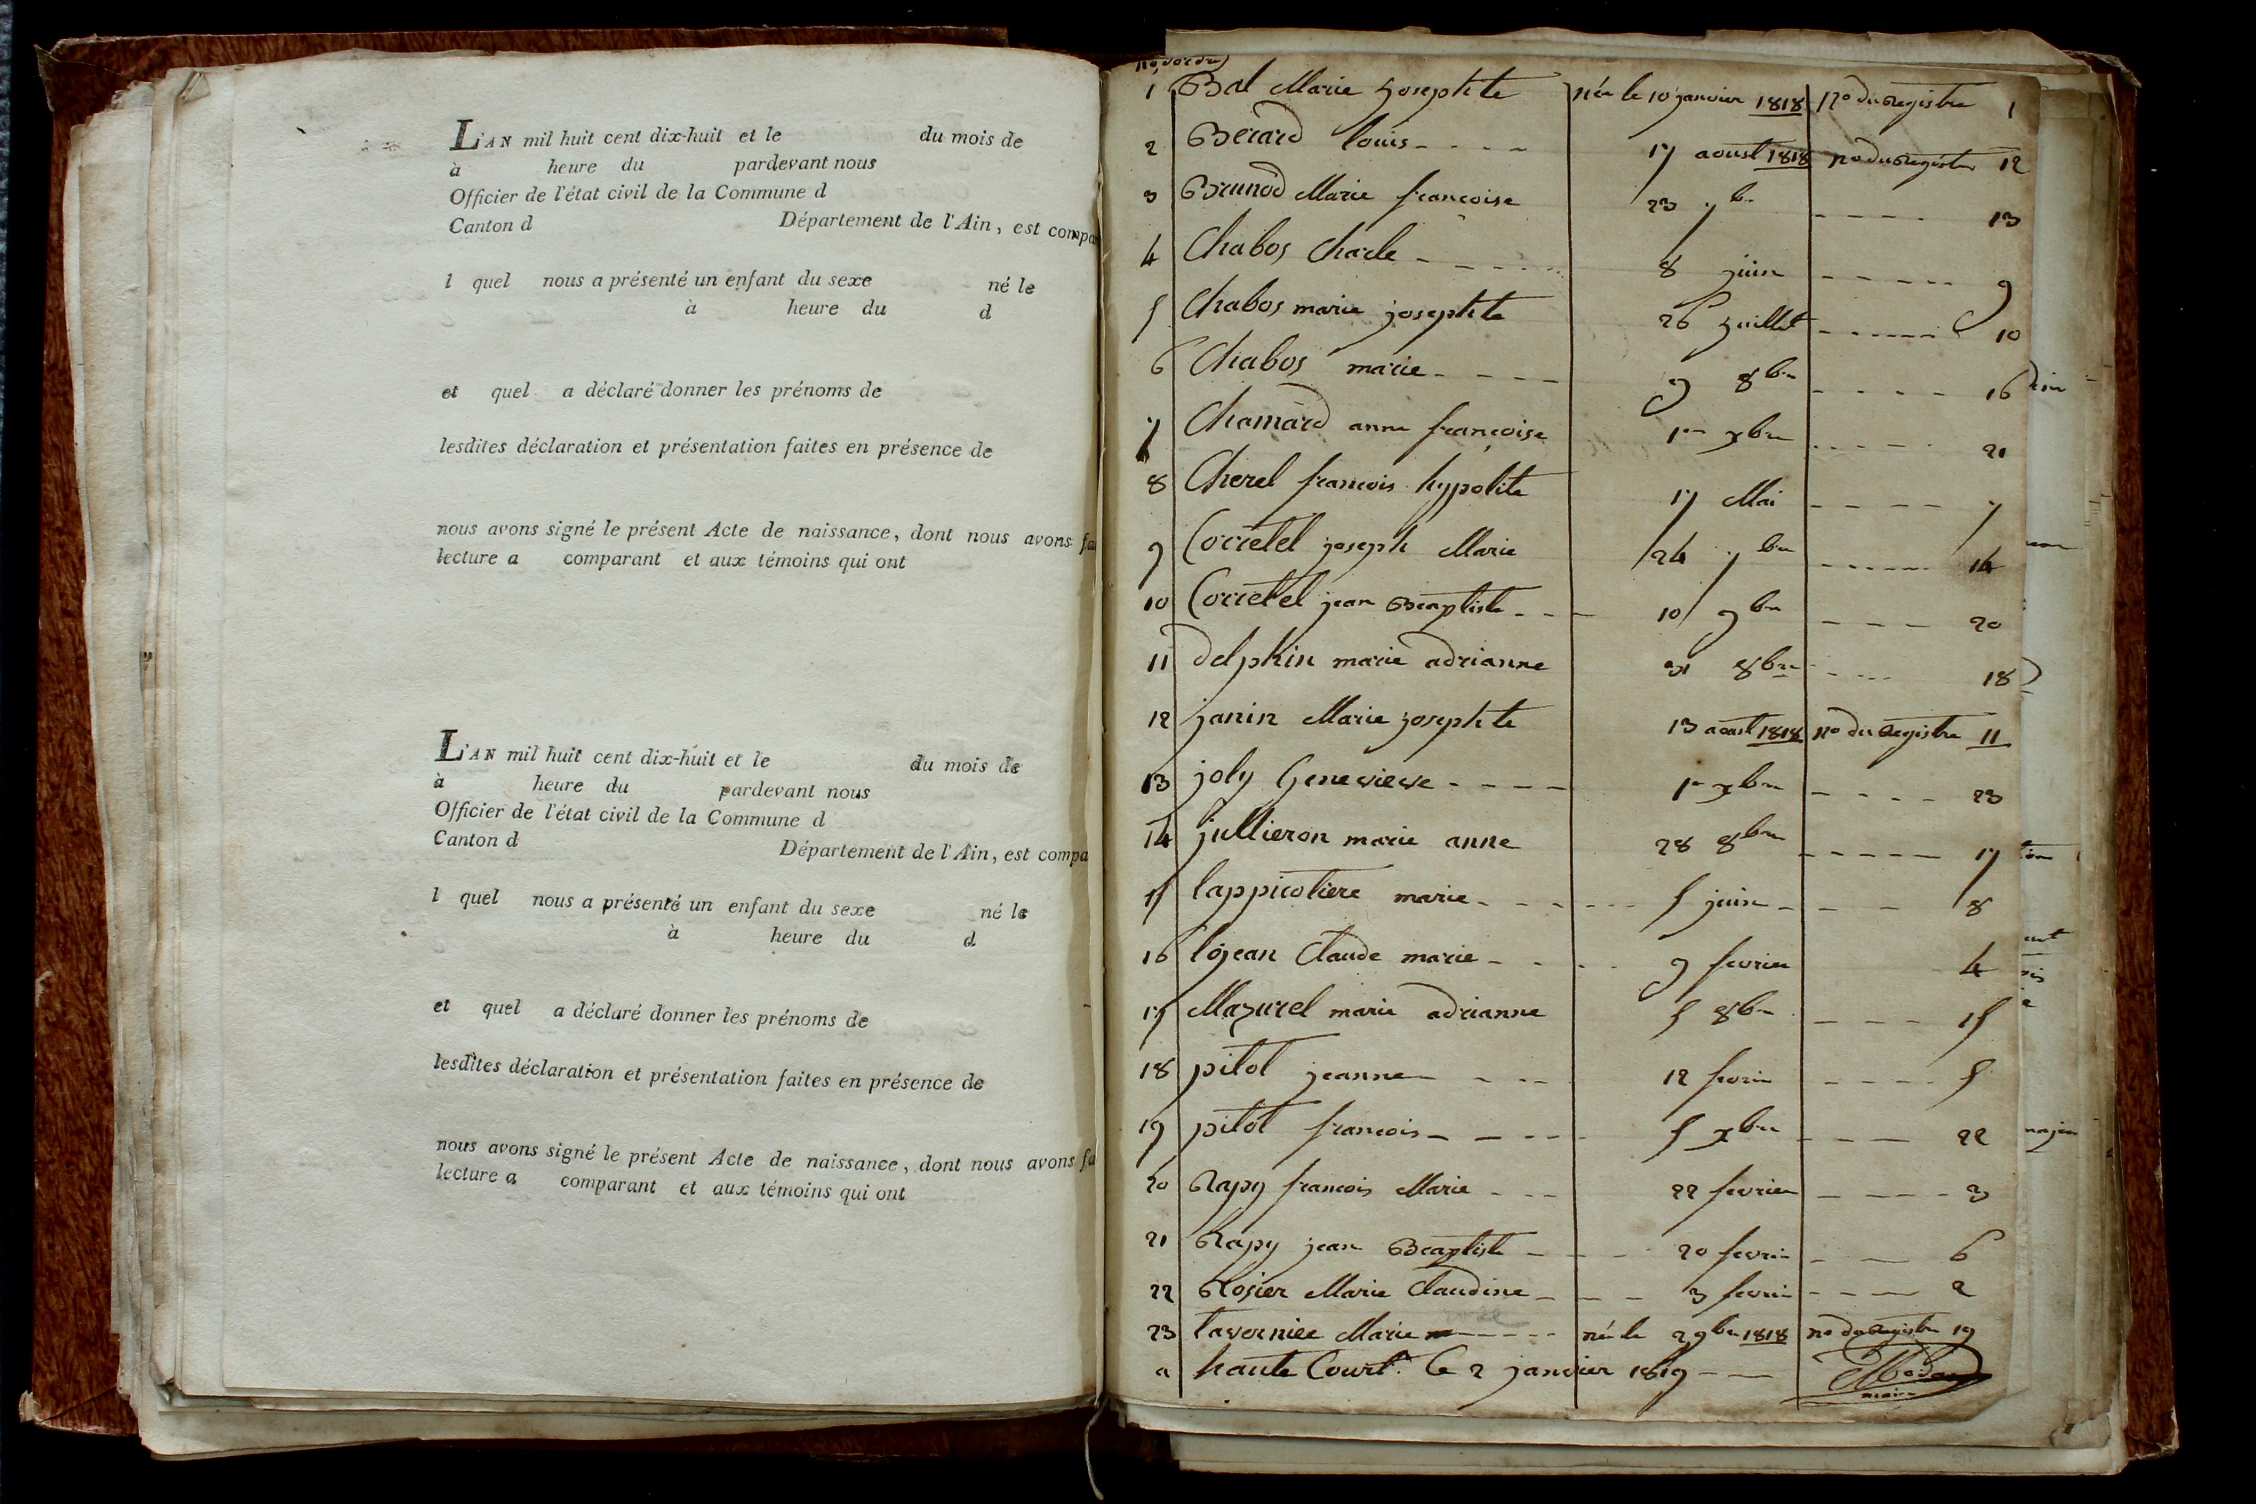 L'AN mil huit cent dix-huit et le du mois de
à heure du pardevant nous
Officier de l'état civil de la Commune d
Canton d Département de l'Ain, est compa
l quel nous a présenté un enfant du sexe né le
à heure du d
et quel a déclaré donner les prénoms de
lesdites déclaration et présentation faites en présence de
nous avons signé le présent Acte de naissance, dont nous avons fa
lecture a comparant et aux témoins qui ont
L'AN mil huit cent dix-huit et le du mois de
à heure du pardevant nous
Officier de l'état civil de la Commune d
Canton d Département de l'Ain, est compa
l quel nous a présenté un enfant du sexe né le
à heure du d
et quel a déclaré donner les prénoms de
lesdites déclaration et présentation faites en présence de
nous avons signé le présent Acte de naissance, dont nous avons fa
lecture a comparant et aux témoins qui ont
1 Bal Marie Josephte née le 10 janvier 1818 no du Registre 1
2 Berard louis 17 aoust 1818 no du Registre 12
3 Brunod Marie francoise 23 7bre 13
4 Chabos Charle 8 juin 9
5 Chabos marie josephte 26 juillet 10
6 Chabos marie 9 8bre 16
7 Chamard anne françoise 1er xbre 21
8 Cherel francois hypolite 17 Mai 7
9 Corretel joseph Marie 24 7bre 14
10 Corretel jean Beaptiste 10 9bre 20
11 delphin marie adrianne 31 8bre 18
12 janin Marie josephte 13 aoust 1818 no du Registre 11
13 joly Genevieve 1er xbre 23
14 jullieron marie anne 28 8bre 17
15 lappicotiere marie 5 juin 8
16 lojean Claude marie 9 fevrier 4
17 Mazurel marie adrianne 5 8bre 15
18 pitot jeanne 12 fevrier 5
19 pitot francois 5 xbre 22
20 Rapy francois Marie 22 fevrier 3
21 Rapy jean Beaptiste 20 fevrier 6
22 Rosier Marie Claudine 3 fevrier 2
23 tavernier Marie née le 2 9bre 1818 no du Registre 19
a haute Court. le 2 janvier 1819
maire